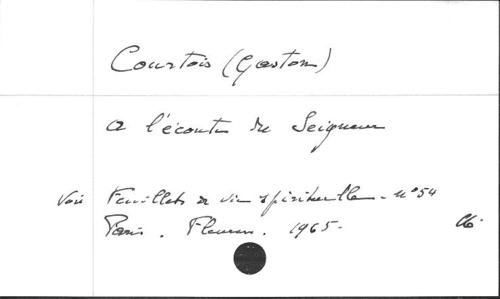 Courtois (Gaston)
A l'écoute du Seigneur
Voir Feuillets de vie spirituelle - N° 54
Paris. Fleurus. 1965.